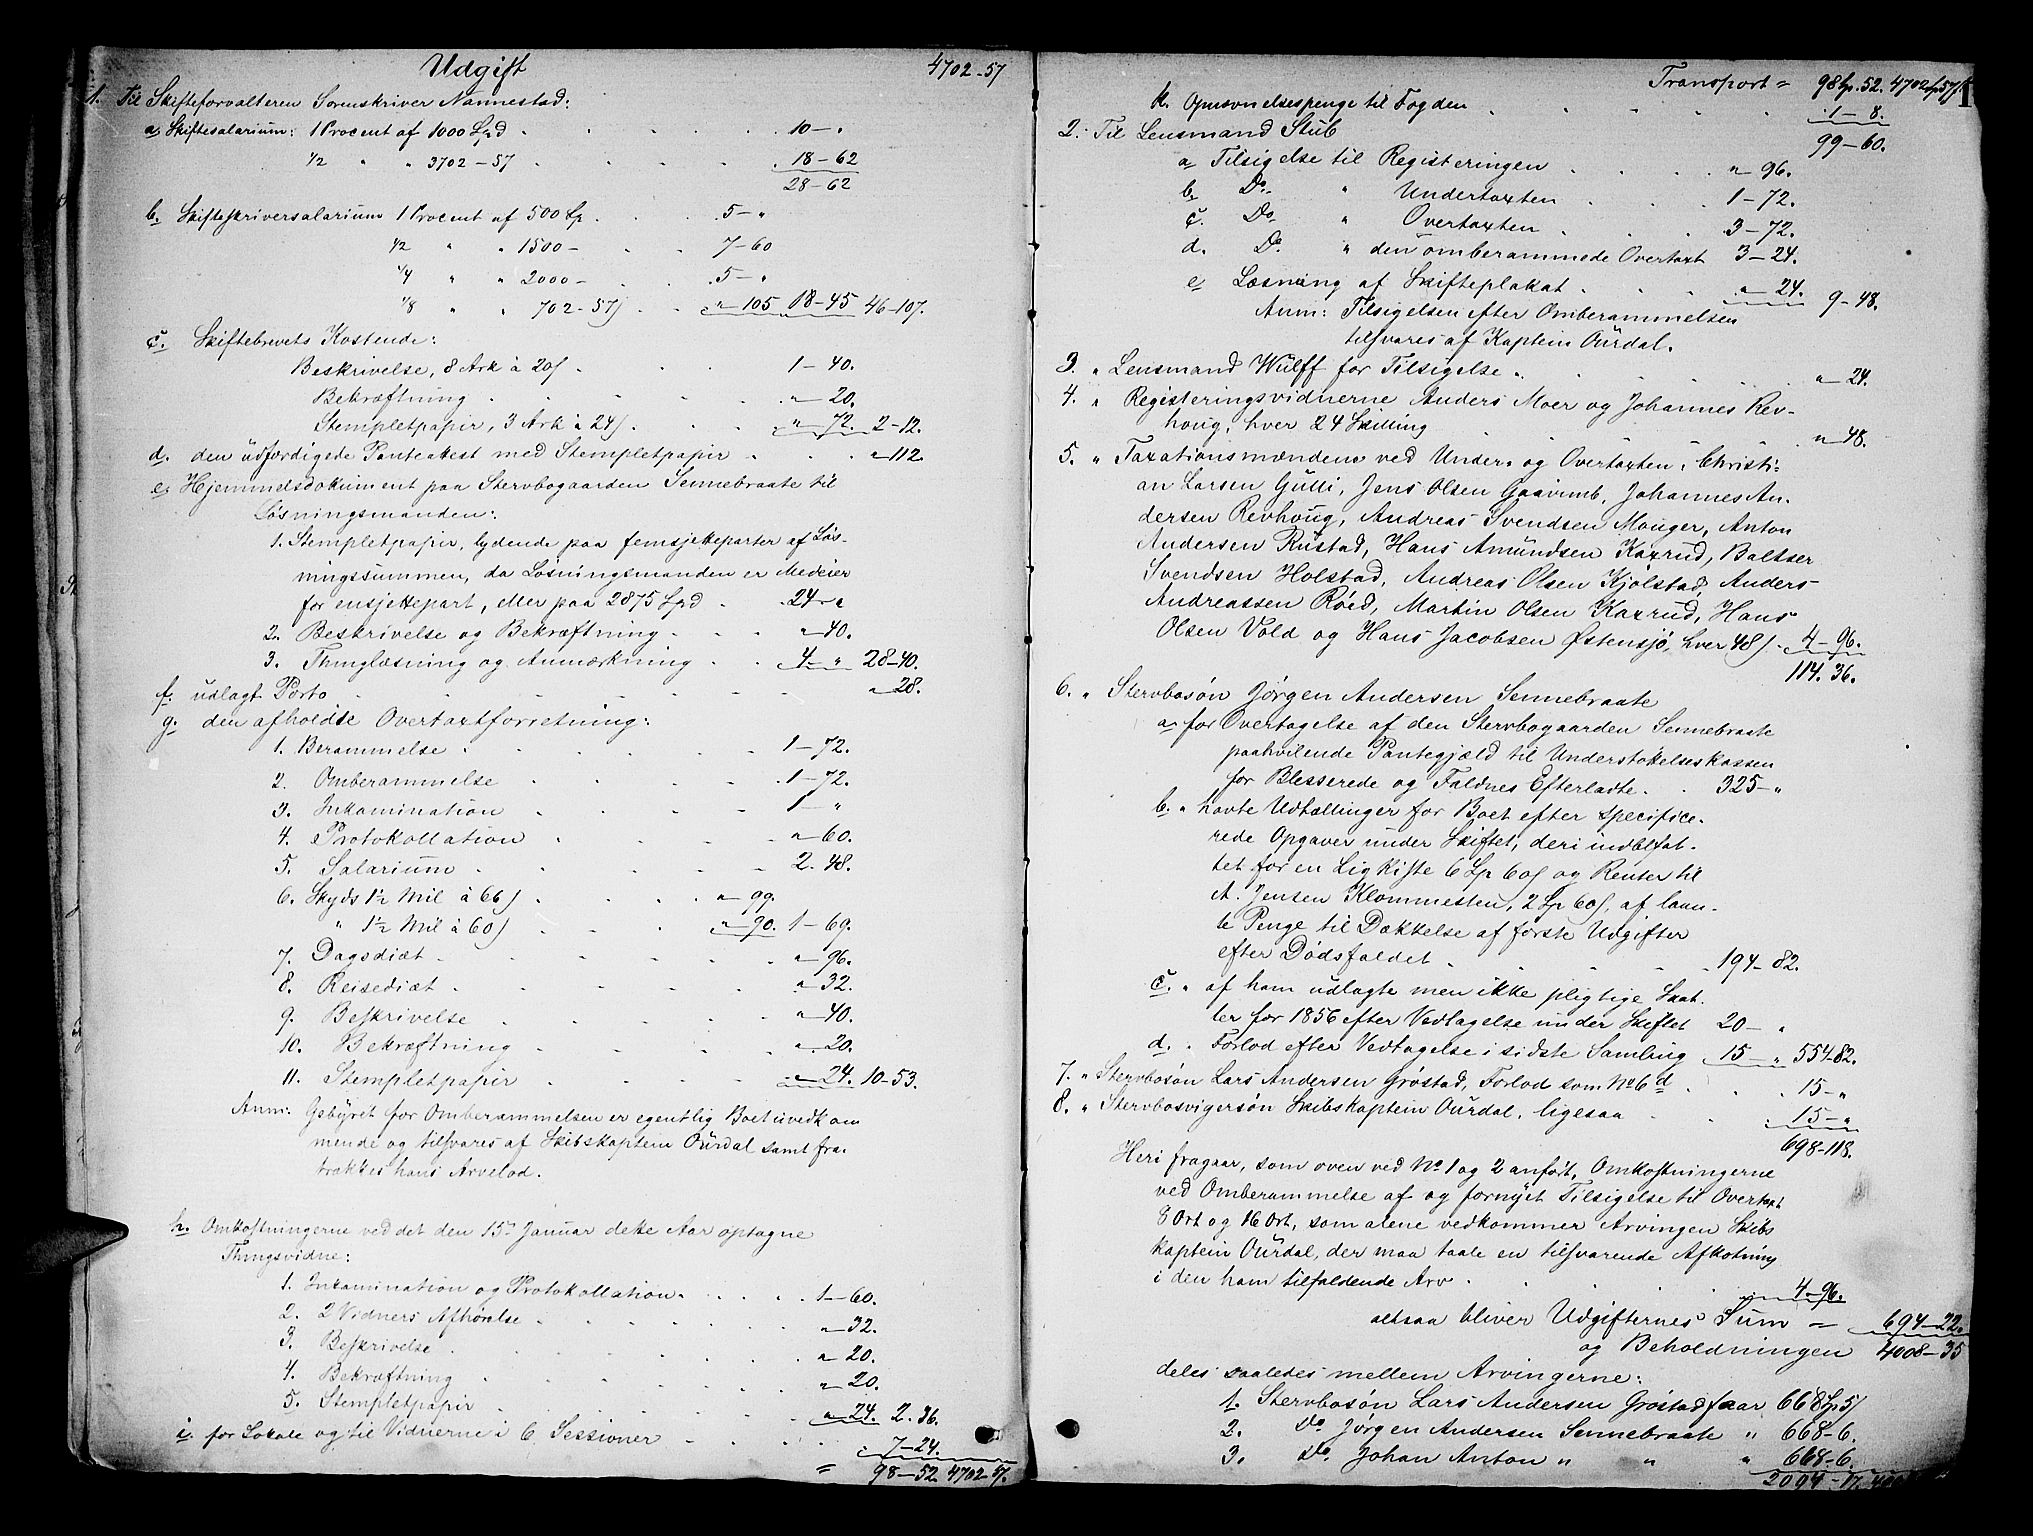 Udgift 4702-57
1. Til Skifteforvalteren Sorenskriver Nannestad:
a. Skiftesalarium: 1 Procent af 1000 Spd 10- "
1/2 " " 3702-57 18-62
28-62
b. Skifteskriversalarium 1 Procent af 500 Sp. 5- "
1/2 " " 1500- 7-60
1/4 " " 2000- 5- "
1/8 " " 702-57 "-105 18-45 46-107.
c. Skiftebrevets Kostende:
Beskrivelse, 8 Ark à 20 1-40.
Bekræftning "-20.
Stempletpapir, 3 Ark à 24 "-72. 2-12.
d. den udfærdigede Panteattest med Stempletpapir "-112.
e. Hjemmelsdokument paa Stervbogaarden Sennebraate til
Løsningsmanden:
1. Stempletpapir, lydende paa femsjetteparter af Løs-
ningssummen, da Løsningsmanden er Medeier
for ensjettepart, eller paa 2875 Spd 24- "
2. Beskrivelse og Bekræftning "-40.
3. Thinglæsning og Anmærkning 4- " 28-40.
f. udlagt Porto "-28.
g. den afholdte Overtaxtforretning:
1. Berammelse 1-72.
2. Omberammelse 1-72.
3. Inkamination 1- "
4. Protokollation "-60.
5. Salarium 2.48.
6. Skyds 1½ Mil à 66 "-99.
" 1½ Mil à 60 "-90. 1-69.
7. Dagsdiæt "-96.
8. Reisediæt "-32.
9. Beskrivelse "-40.
10. Bekræftning "-20.
11. Stempletpapir "-24. 10-53.
Anm: Gebyret for Omberammelsen er egentlig Boet uvedkom
mende og tilsvares af Skibskaptein Ourdal samt fra-
trækkes hans Arvelod.
h. Omkostningerne ved det den 15de Januar dette Aar optagne
Thingsvidne:
1. Inkamination og Protokollation 1-60.
2. 2 Vidners Afhørelse "-32.
3. Beskrivelse "-20.
4. Bekræftning "-20.
5. Stempletpapir "-24. 2.36.
i. for Lokale og til Vidnerne i 6 Sessioner 7-24.
= 98-52 4702-57.
Transport = 98Sp.52. 4702Sp57
k. Opnævnelsespenge til Fogden 1-8.
99-60.
2. Til Lensmand Stub
a. Tilsigelse til Registeringen "-96.
b. Do. " Undertaxten 1-72.
c. Do " Overtaxten 3-72.
d. Do. " den omberammede Overtaxt 3-24.
e. Læsning af Skifteplakat "-24. 9-48.
Anm: Tilsigelsen efter Omberammelsen
tilsvares af Kaptein Ourdal.
3. " Lensmand Wulff for Tilsigelse "-24.
4. " Registeringsvidnerne Anders Moer og Johannes Rev-
houg, hver 24 Skilling "-48.
5. " Taxationsmændene ved Under- og Overtaxten: Christi-
an Larsen Gulli, Jens Olsen Gaarimb, Johannes An-
dersen Revhoug, Andreas Svendsen Mouger, Anton
Andersen Rustad, Hans Amundsen Kaxrud, Baltser
Svendsen Holstad, Andreas Olsen Kjølstad, Anders
Andreassen Røed, Martin Olsen Kaxrud, Hans
Olsen Vold og Hans Jacobsen Østensjø, hver 48 4-96.
114.36.
6. " Stervbosøn Jørgen Andersen Sennebraate
a. for Overtagelse af den Stervbogaarden Sennebraate
paahvilende Pantegjæld til Understøttelseskassen
for Blesserede og Faldnes Efterladte 325- "
b. " havte Udtællinger for Boet efter specifice-
rede Opgaver under Skiftet, deri indbefat-
tet for en Ligkiste 6 Sp 60 og Renter til
A. Jensen Klommesten, 2 Sp 60, af laan-
te Penge til Dækkelse af første Udgifter
efter Dødsfaldet 194-82.
c. " af ham udlagte men ikke pligtige Skat-
ter for 1856 efter Vedtagelse under Skiftet 20- "
d. " Forlod efter Vedtagelse i sidste Samling 15- " 554-82.
7. " Stervbosøn Lars Andersen Grøstad, Forlod som No 6 d 15- "
8. " Stervbosvigersøn Skibskaptein Ourdal, ligesaa 15- "
698-118.
Heri fragaar, som oven ved No 1 og 2 anført, Omkostningerne
ved Omberammelse af og fornyet Tilsigelse til Overtaxt
8 Ort og 16 Ort, som alene vedkommer Arvingen Skibs
kaptein Ourdal, der maa taale en tilsvarende Afkortning
i den ham tilfaldende Arv 4-96.
altsaa bliver Udgifternes Sum = 694-22.
og Beholdningen 4008-35
deles saaledes mellem Arvingerne:
1. Stervbosøn Lars Andersen Grøstad faar 668Sp5
2. Do Jørgen Andersen Sennebraate " 668-6.
3. Do. Johan Anton " " " 668-6.
2004-17.